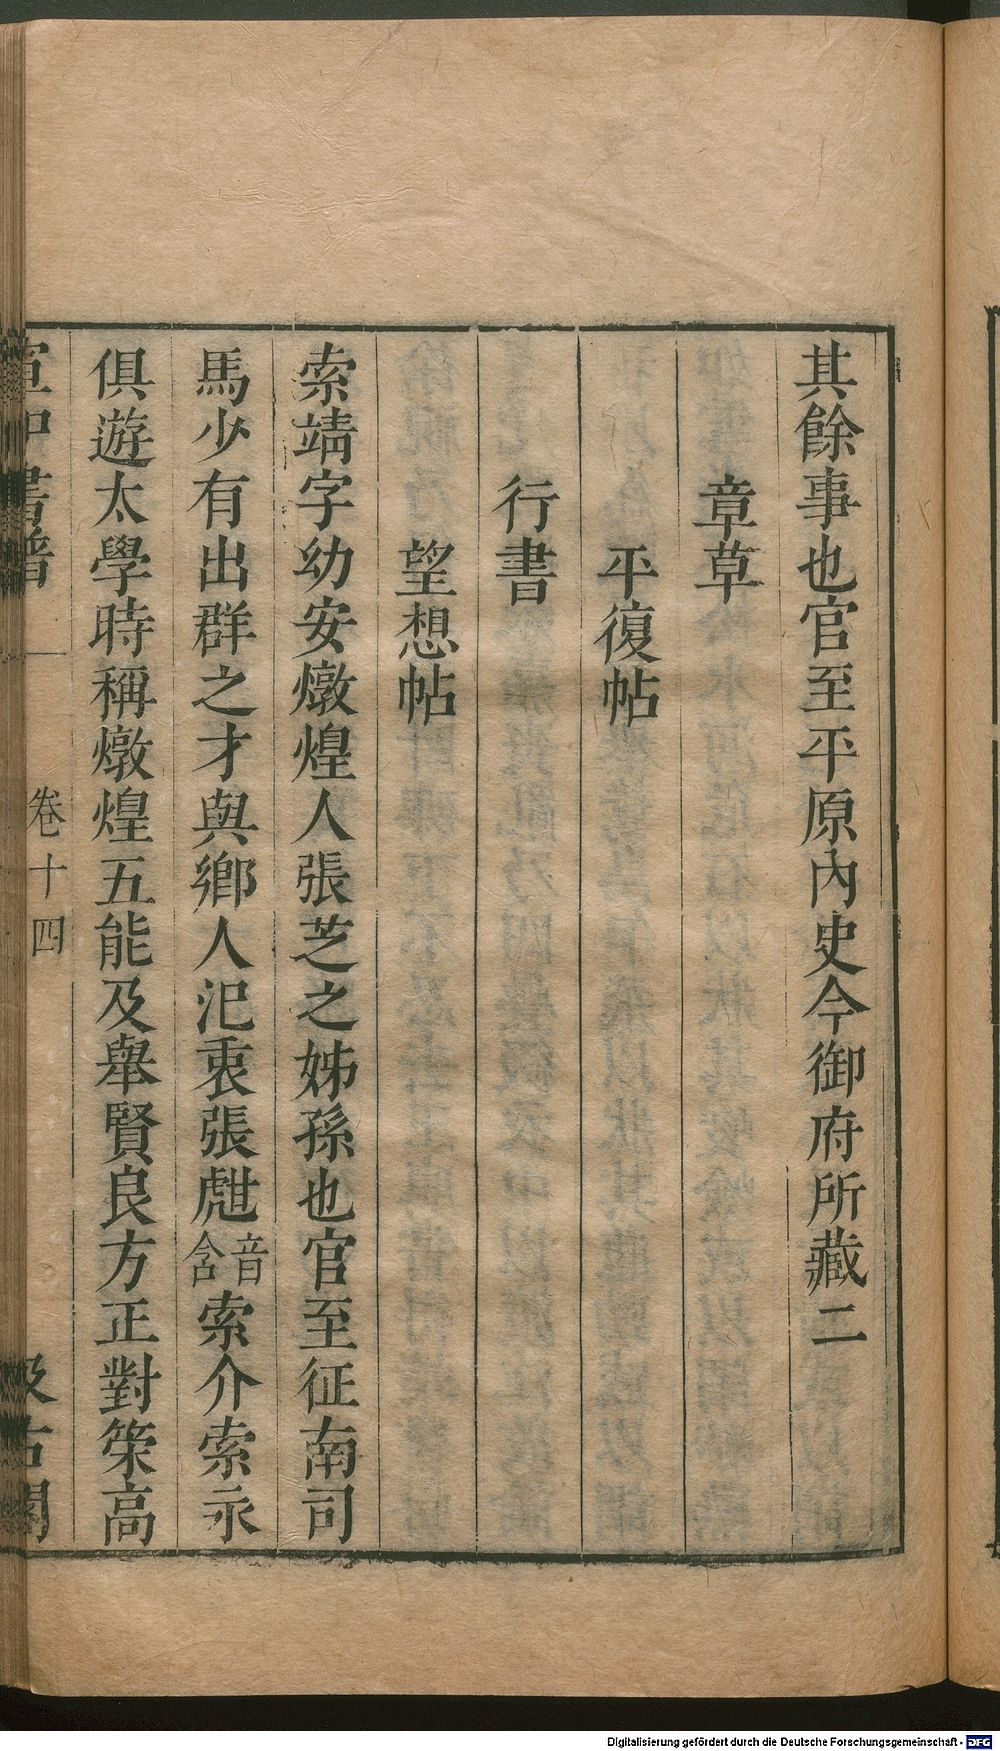 其餘事也官至平原內史今御府所藏二
章草
平復帖
行書
望想帖
索靖字幼安燉煌人張芝之姊孫也官至征南司
馬少有出群之才與鄉人氾衷張甝音含索介索永
俱遊太學時稱燉煌五龍及舉賢良方正對策高
宣和書譜 卷十四 汲古閣
Digitalisierung gefördert durch die Deutsche Forschungsgemeinschaft - DFG